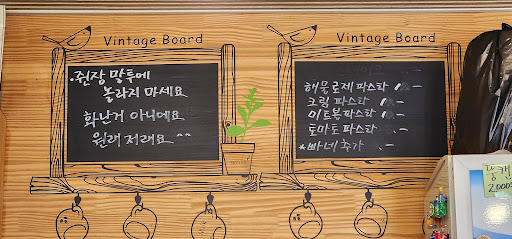 Vintage Board
·쥔장 말투에
놀라지 마세요
화난거 아니에요
원래 저래요 ^^
Vintage Board
해물로제 파스타
크림 파스타
미트볼 파스타
토마토 파스타
*빠네 추가
2,000